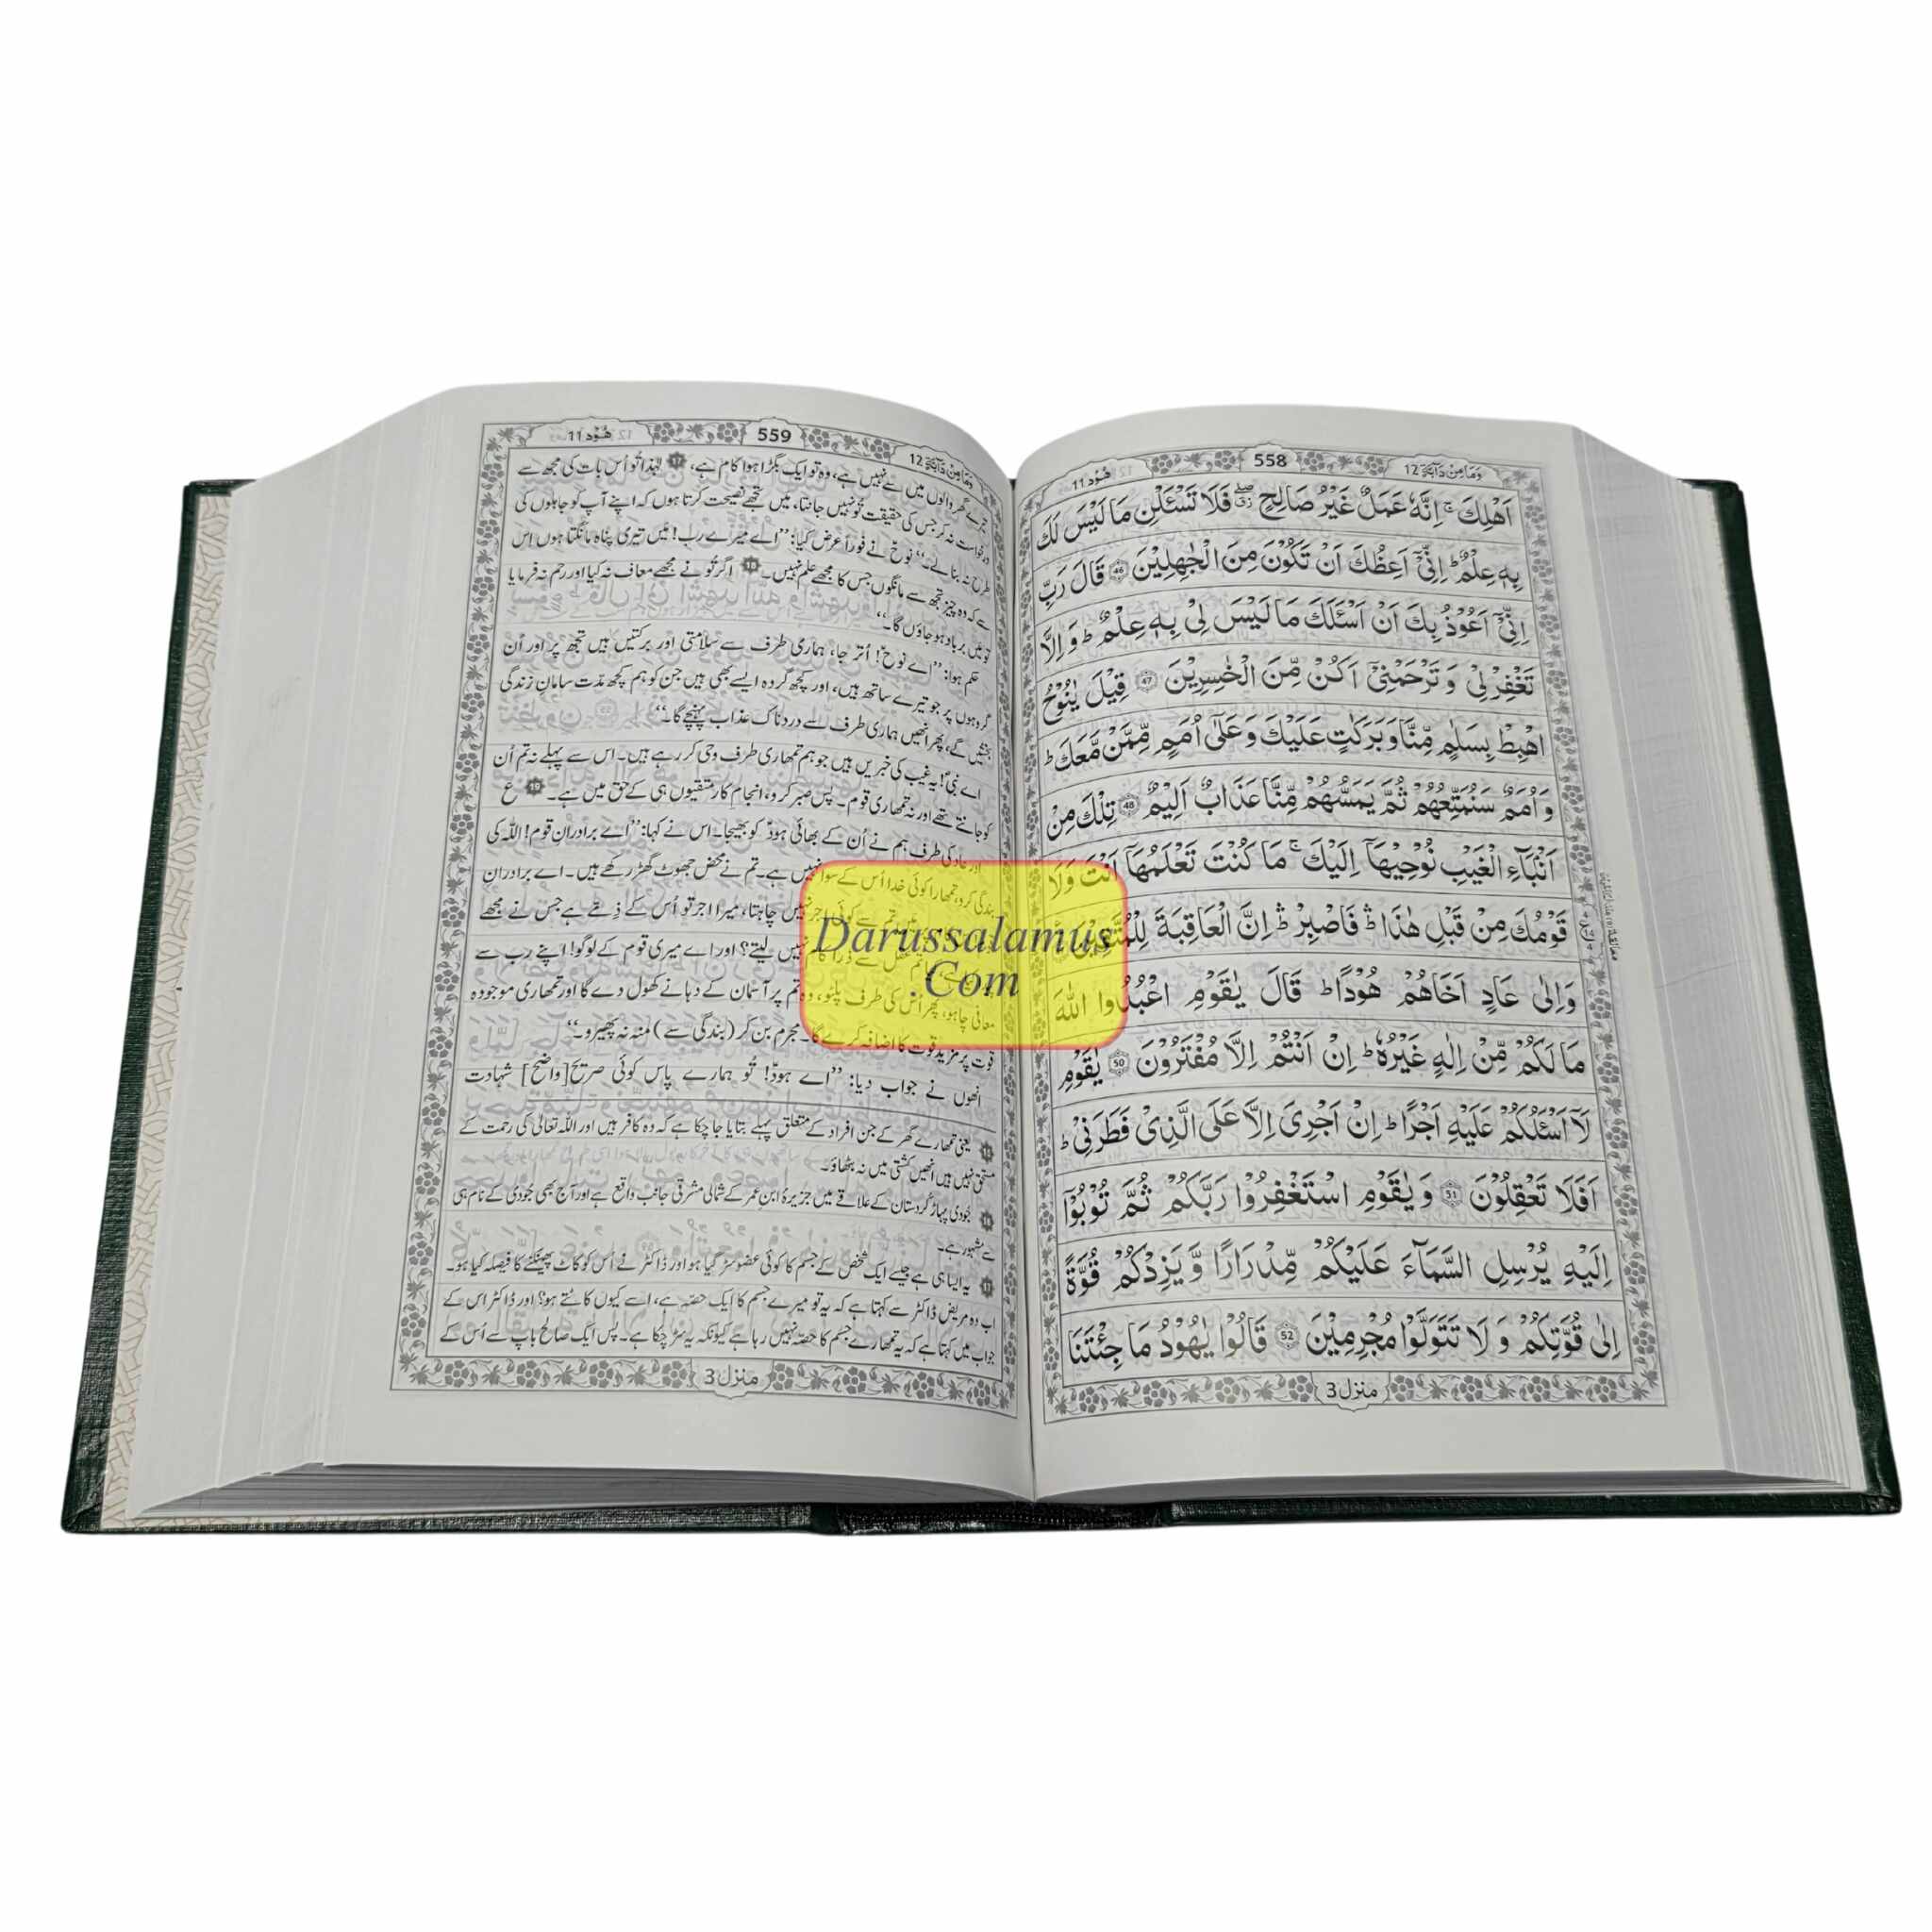 وَمَا مِنْ دَآبَّةٍ 12
558
هُوْد 11
اَهْلِكَ ۚ اِنَّهٗ عَمَلٌ غَیْرُ صَالِحٍ ۖ فَلَا تَسْـَٔلْنِ مَا لَیْسَ لَكَ
بِهٖ عِلْمٌ ؕ اِنِّیْۤ اَعِظُكَ اَنْ تَكُوْنَ مِنَ الْجٰهِلِیْنَ 46 قَالَ رَبِّ
اِنِّیْۤ اَعُوْذُ بِكَ اَنْ اَسْـَٔلَكَ مَا لَیْسَ لِیْ بِهٖ عِلْمٌ ؕ وَ اِلَّا
تَغْفِرْ لِیْ وَ تَرْحَمْنِیْۤ اَكُنْ مِّنَ الْخٰسِرِیْنَ 47 قِیْلَ یٰنُوْحُ
اهْبِطْ بِسَلٰمٍ مِّنَّا وَ بَرَكٰتٍ عَلَیْكَ وَ عَلٰۤی اُمَمٍ مِّمَّنْ مَّعَكَ ؕ
وَ اُمَمٌ سَنُمَتِّعُهُمْ ثُمَّ یَمَسُّهُمْ مِّنَّا عَذَابٌ اَلِیْمٌ 48 تِلْكَ مِنْ
اَنْۢبَآءِ الْغَیْبِ نُوْحِیْهَاۤ اِلَیْكَ ۚ مَا كُنْتَ تَعْلَمُهَاۤ اَنْتَ وَ لَا
قَوْمُكَ مِنْ قَبْلِ هٰذَا ؕ فَاصْبِرْ ؕ اِنَّ الْعَاقِبَةَ لِلْمُتَّقِیْنَ
وَ اِلٰی عَادٍ اَخَاهُمْ هُوْدًا ؕ قَالَ یٰقَوْمِ اعْبُدُوا اللّٰهَ
مَا لَكُمْ مِّنْ اِلٰهٍ غَیْرُهٗ ؕ اِنْ اَنْتُمْ اِلَّا مُفْتَرُوْنَ 50 یٰقَوْمِ
لَاۤ اَسْـَٔلُكُمْ عَلَیْهِ اَجْرًا ؕ اِنْ اَجْرِیَ اِلَّا عَلَی الَّذِیْ فَطَرَنِیْ ؕ
اَفَلَا تَعْقِلُوْنَ 51 وَ یٰقَوْمِ اسْتَغْفِرُوْا رَبَّكُمْ ثُمَّ تُوْبُوْۤا
اِلَیْهِ یُرْسِلِ السَّمَآءَ عَلَیْكُمْ مِّدْرَارًا وَّ یَزِدْكُمْ قُوَّةً
اِلٰی قُوَّتِكُمْ وَ لَا تَتَوَلَّوْا مُجْرِمِیْنَ 52 قَالُوْا یٰهُوْدُ مَا جِئْتَنَا
منزل 3
وَمَا مِنْ دَآبَّةٍ 12
559
هُوْد 11
تیرے گھر والوں میں سے نہیں ہے، وہ تو ایک بگڑا ہوا کام ہے، 17 لہٰذا تُو اُس بات کی مجھ سے
درخواست نہ کر جس کی حقیقت تُو نہیں جانتا، میں تجھے نصیحت کرتا ہوں کہ اپنے آپ کو جاہلوں کی
طرح نہ بنا لے۔“ نوحؑ نے فوراً عرض کیا: ”اے میرے رب! میں تیری پناہ مانگتا ہوں اس
سے کہ وہ چیز تجھ سے مانگوں جس کا مجھے علم نہیں۔ 18 اگر تُو نے مجھے معاف نہ کیا اور رحم نہ فرمایا
تو میں برباد ہو جاؤں گا۔“
حکم ہوا: ”اے نوحؑ! اُتر جا، ہماری طرف سے سلامتی اور برکتیں ہیں تجھ پر اور اُن
گروہوں پر جو تیرے ساتھ ہیں، اور کچھ گروہ ایسے بھی ہیں جن کو ہم کچھ مدّت سامانِ زندگی
بخشیں گے، پھر انھیں ہماری طرف سے دردناک عذاب پہنچے گا۔“
اے نبیؐ! یہ غیب کی خبریں ہیں جو ہم تمھاری طرف وحی کر رہے ہیں۔ اس سے پہلے نہ تم اُن
کو جانتے تھے اور نہ تمھاری قوم۔ پس صبر کرو، انجام کار متقیوں ہی کے حق میں ہے۔ 19 ع
اور عاد کی طرف ہم نے اُن کے بھائی ہودؑ کو بھیجا۔ اس نے کہا: ”اے برادرانِ قوم! اللہ کی
بندگی کرو، تمھارا کوئی خدا اُس کے سوا نہیں ہے۔ تم نے محض جھوٹ گھڑ رکھے ہیں۔ اے برادرانِ
میں تم سے کوئی اجر نہیں چاہتا، میرا اجر تو اُس کے ذِمّے ہے جس نے مجھے
تم عقل سے ذرا کام نہیں لیتے؟ اور اے میری قوم کے لوگو! اپنے رب سے
معافی چاہو، پھر اُس کی طرف پلٹو، وہ تم پر آسمان کے دہانے کھول دے گا اور تمھاری موجودہ
قوت پر مزید قوت کا اضافہ کرے گا۔ مجرم بن کر (بندگی سے) منہ نہ پھیرو۔“
انھوں نے جواب دیا: ”اے ہودؑ! تُو ہمارے پاس کوئی صریح [واضح] شہادت
یعنی تمھارے گھر کے جن افراد کے متعلق پہلے بتایا جا چکا ہے کہ وہ کافر ہیں اور اللہ تعالیٰ کی رحمت کے
مستحق نہیں ہیں انھیں کشتی میں نہ بٹھاؤ۔
جُودی پہاڑ کُردستان کے علاقے میں جزیرۂ ابنِ عمر کے شمالی مشرقی جانب واقع ہے اور آج بھی جُودی کے نام ہی
سے مشہور ہے۔
17 یہ ایسا ہی ہے جیسے ایک شخص کے جسم کا کوئی عضو سڑ گیا ہو اور ڈاکٹر نے اُس کو کاٹ پھینکنے کا فیصلہ کیا ہو۔
اب وہ مریض ڈاکٹر سے کہتا ہے کہ یہ تو میرے جسم کا ایک حصّہ ہے، اسے کیوں کاٹتے ہو؟ اور ڈاکٹر اس کے
جواب میں کہتا ہے کہ یہ تمھارے جسم کا حصّہ نہیں رہا ہے کیونکہ یہ سڑ چکا ہے۔ پس ایک صالح باپ سے اُس کے
منزل 3
Darussalamus
.Com